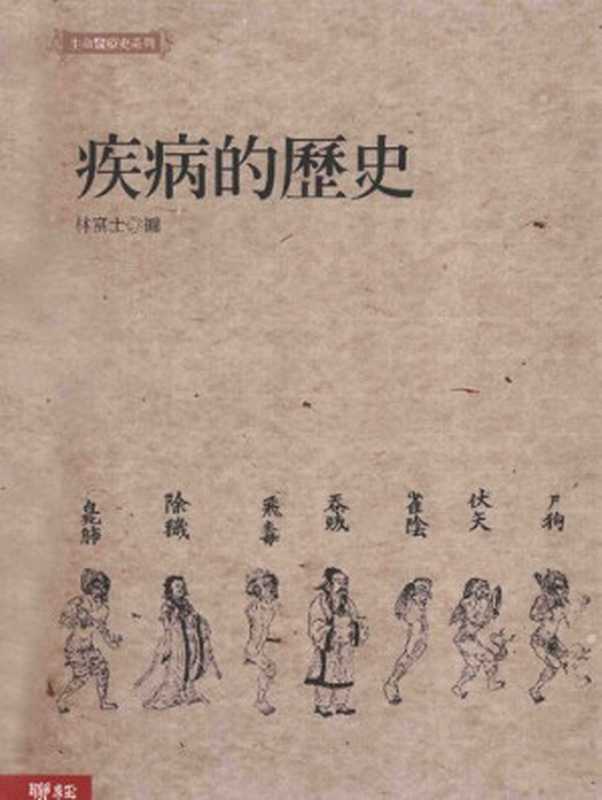 生命醫療史系列
疾病的歷史
林富士◎編
尸狗
伏矢
雀陰
吞賊
飛毒
除穢
臭肺
聯經